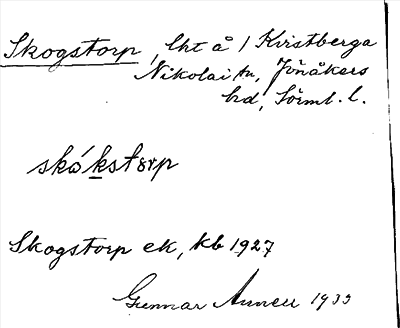 Skogstorp, lht å / Kvistberga
Nikolai sn, Jönåkers
hd, Sörml. l.
skókstorp
Skogstorp ek, kb 1927
Gunnar 1933